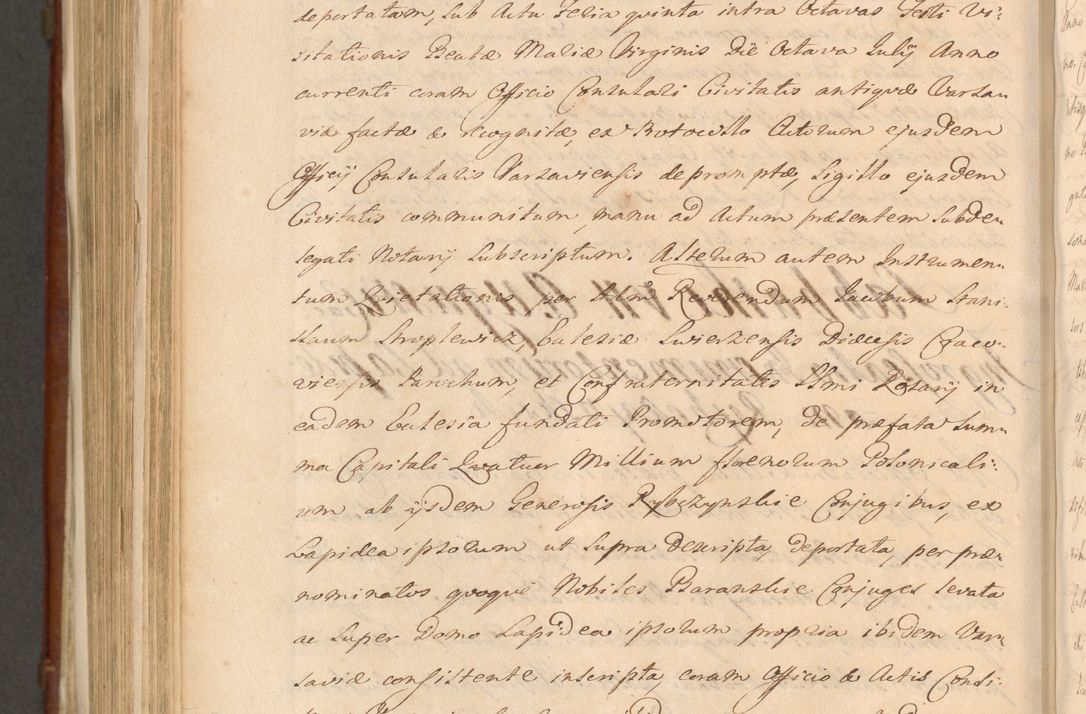 deportatam, sub Actu Feria quinta intra Octavas Festi Vi:
sitationis Beatæ Mariæ Virginis Die Octava Julij Anno
currenti coram Officio Consulari Civitatis antiquæ Varsa
viæ factæ & recognitæ, ex Protocollo Actorum ejusdem
Officij Consularis Varsaviensis depromptæ, Sigillo ejusdem
Civitatis communitum, manu ad Actum præsentem Subde
legati Notarij Subscriptum. Alterum autem Instrumen
tum Quietationis per Adm Reverendum Jacobum Stani
slaum Ecclesiæ Swierzensis Diæcesis Craco
viensis Parochum, et Confraternitatis SSmi Rosarij in
eadem Eclesia fundati Promotorem, de præfata Sum
ma Capitali Quatuor Millium florenorum Polonicali
um ab ijsdem Generosis Rybczynskie Conjugibus, ex
Lapidea ipsorum ut supra descripta, deportata, per præ
nominatos quoque Nobiles Baranskie Conjuges levata
ac super Domo Lapidea ipsorum propria ibidem Var
saviæ consistente inscripta, coram Officio & Actis Consi